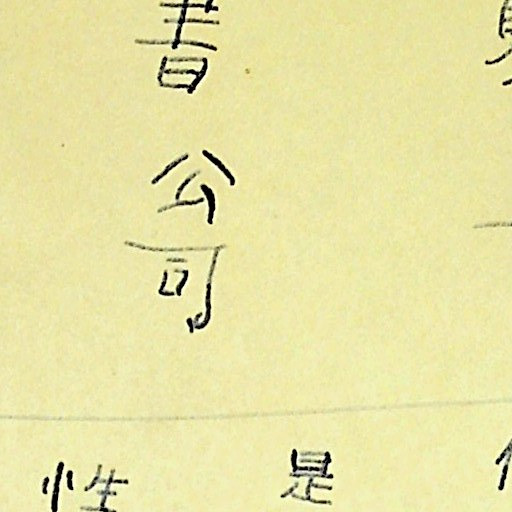 書公司
性 是